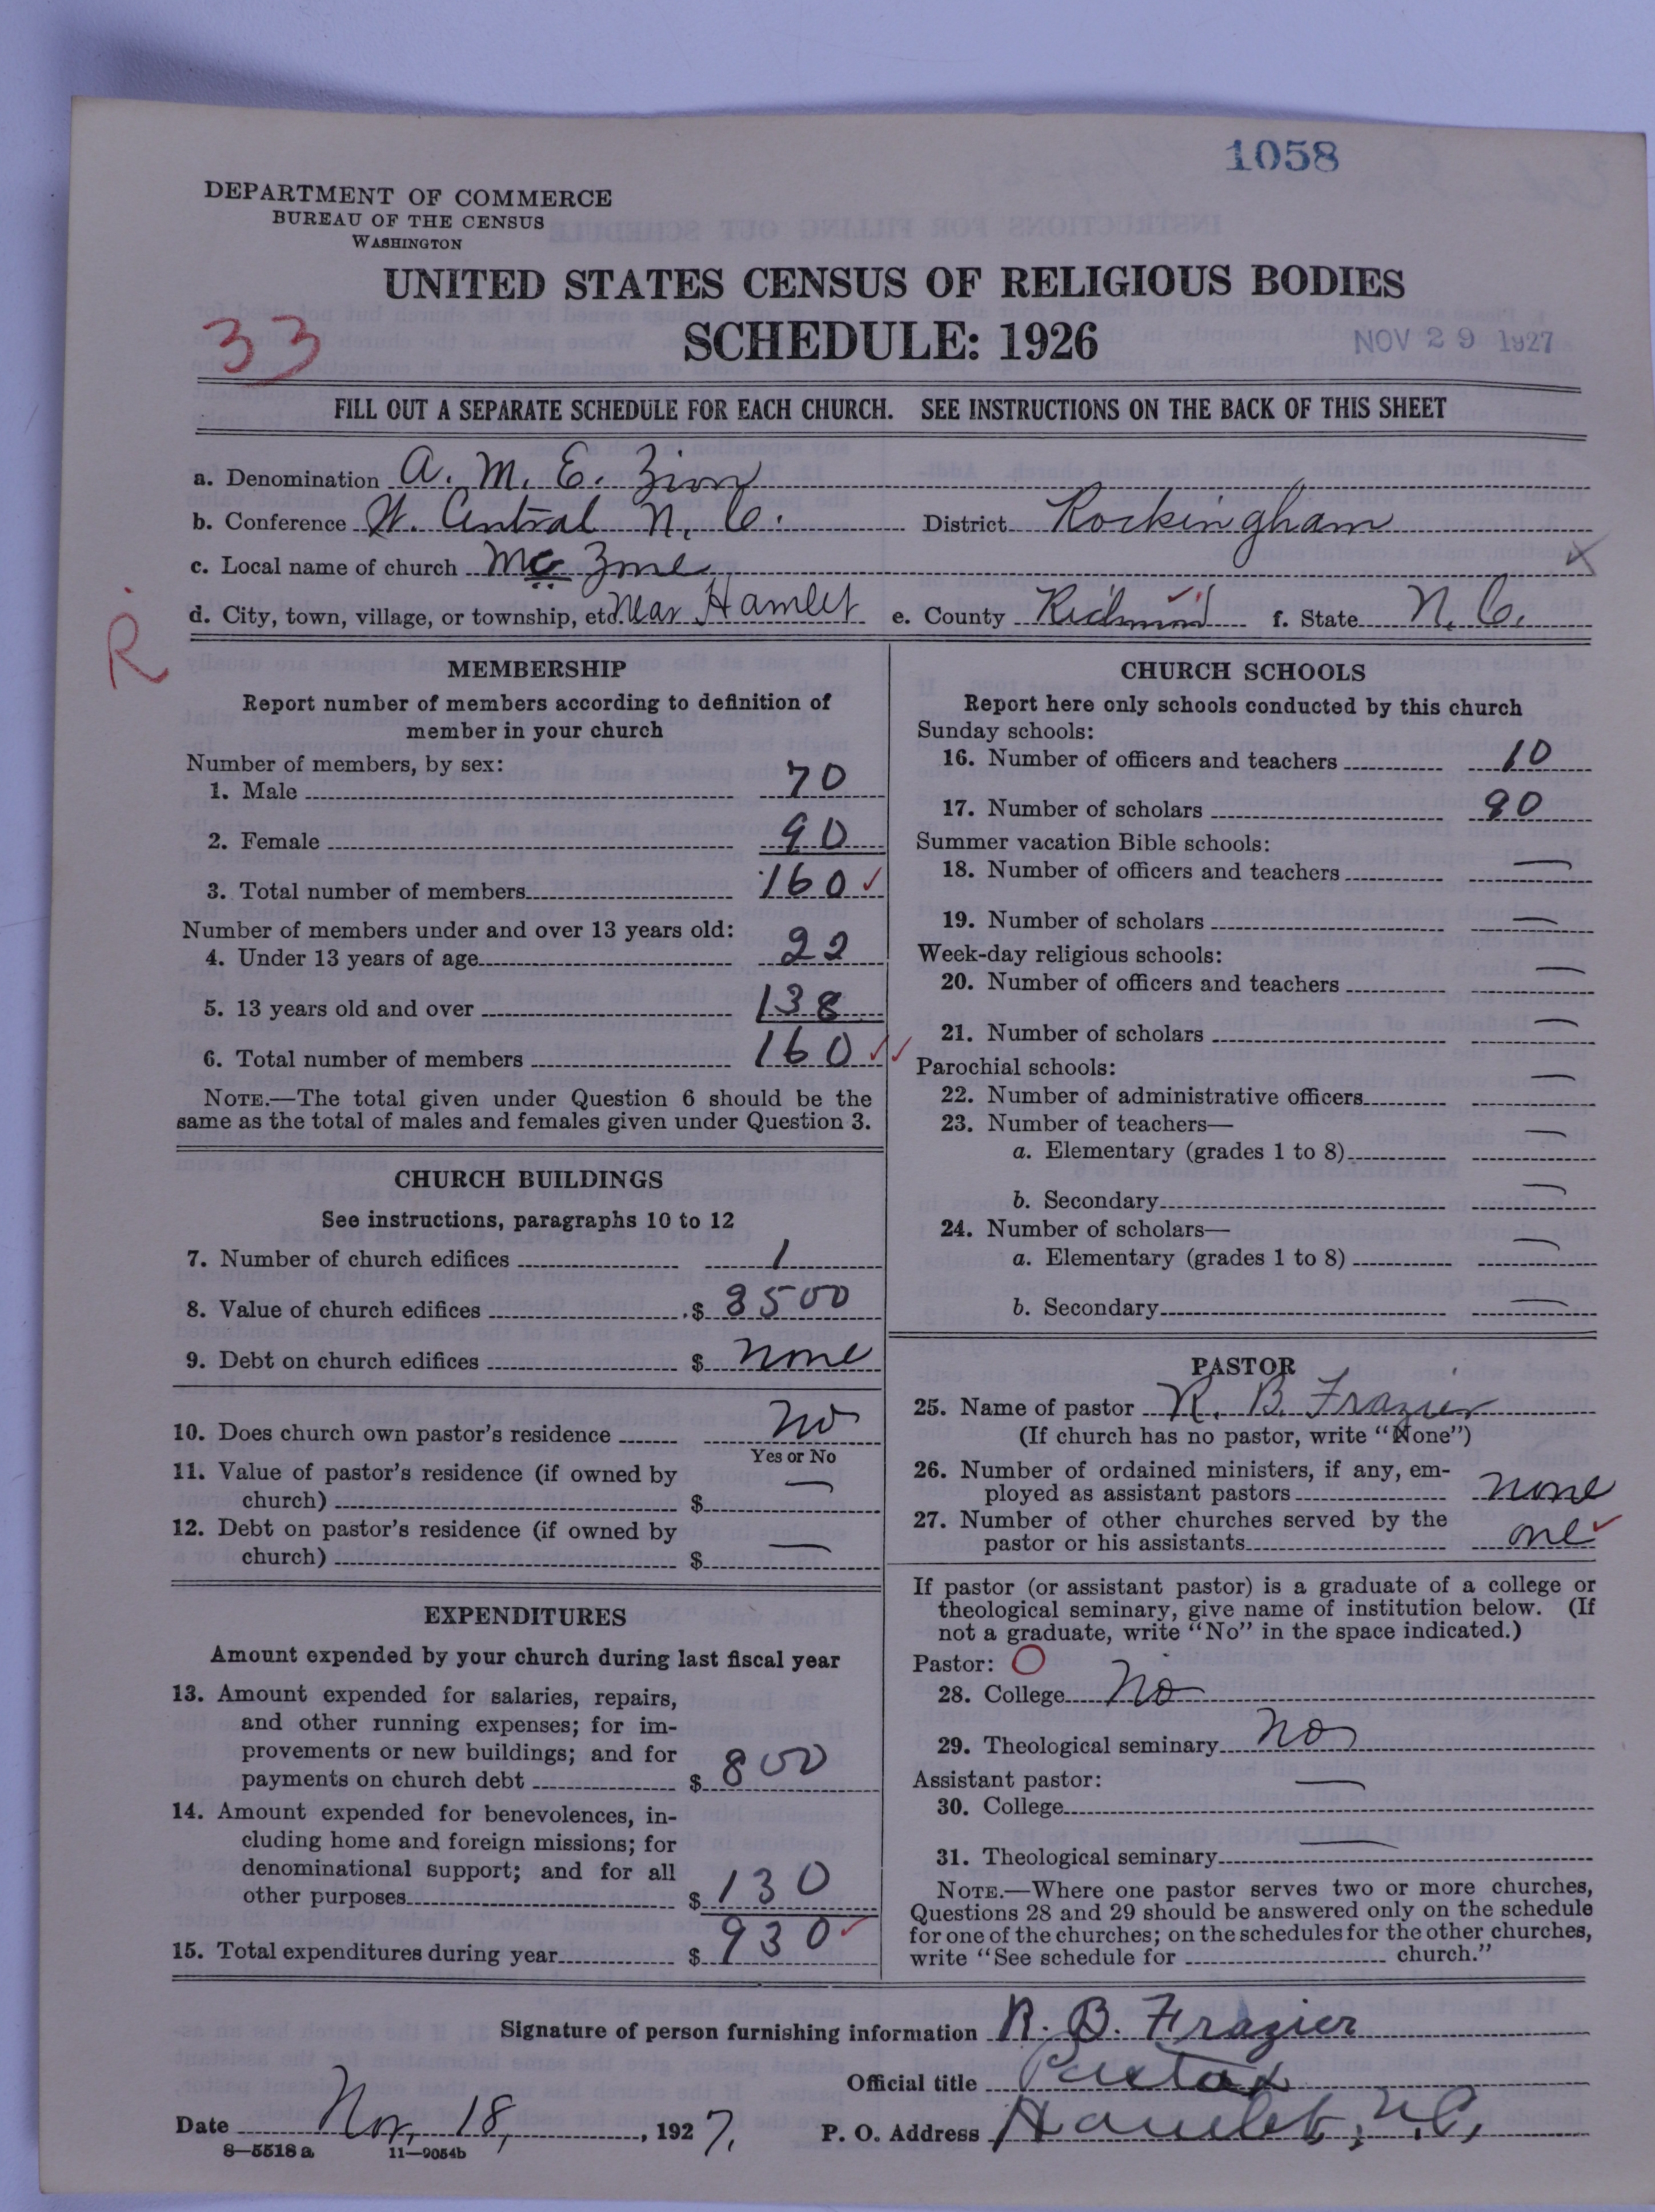 1058
DEPARTMENT OF COMMERCE
BUREAU OF THE CENSUS
WASHINGTON
UNITED STATES CENSUS OF RELIGIOUS BODIES
33
SCHEDULE: 1926
NOV 29 1927
FILL OUT A SEPARATE SCHEDULE FOR EACH CHURCH. SEE INSTRUCTIONS ON THE BACK OF THIS SHEET
a. Denomination A. M. E. Zion
b. Conference W. Central N. C. District Rockingham
c. Local name of church Mc Zone
d. City, town, village, or township, etc. Near Hamlet e. County Richmond f. State N. C.
R
MEMBERSHIP
Report number of members according to definition of
member in your church
Number of members, by sex:
1. Male 70
2. Female 90
3. Total number of members 160
Number of members under and over 13 years old:
4. Under 13 years of age 22
5. 13 years old and over 138
6. Total number of members 160
NOTE.—The total given under Question 6 should be the
same as the total of males and females given under Question 3.
CHURCH BUILDINGS
See instructions, paragraphs 10 to 12
7. Number of church edifices 1
8. Value of church edifices $ 3500
9. Debt on church edifices $ none
10. Does church own pastor's residence No
Yes or No
11. Value of pastor's residence (if owned by
church) $ —
12. Debt on pastor's residence (if owned by
church) $ —
EXPENDITURES
Amount expended by your church during last fiscal year
13. Amount expended for salaries, repairs,
and other running expenses; for im-
provements or new buildings; and for
payments on church debt $ 800
14. Amount expended for benevolences, in-
cluding home and foreign missions; for
denominational support; and for all
other purposes $ 130
15. Total expenditures during year $ 930
CHURCH SCHOOLS
Report here only schools conducted by this church
Sunday schools:
16. Number of officers and teachers 10
17. Number of scholars 90
Summer vacation Bible schools:
18. Number of officers and teachers —
19. Number of scholars —
Week-day religious schools:
20. Number of officers and teachers —
21. Number of scholars —
Parochial schools:
22. Number of administrative officers —
23. Number of teachers—
a. Elementary (grades 1 to 8) —
b. Secondary —
24. Number of scholars—
a. Elementary (grades 1 to 8) —
b. Secondary —
PASTOR
25. Name of pastor R. B. Frazier
(If church has no pastor, write "None")
26. Number of ordained ministers, if any, em-
ployed as assistant pastors none
27. Number of other churches served by the
pastor or his assistants one
If pastor (or assistant pastor) is a graduate of a college or
theological seminary, give name of institution below. (If
not a graduate, write "No" in the space indicated.)
Pastor: O
28. College No
29. Theological seminary No
Assistant pastor:
30. College —
31. Theological seminary —
NOTE.—Where one pastor serves two or more churches,
Questions 28 and 29 should be answered only on the schedule
for one of the churches; on the schedules for the other churches,
write "See schedule for church."
Signature of person furnishing information R. B. Frazier
Official title Pastor
Date Nov. 18, 1927. P. O. Address Hamlet, N.C.
8—5518 a 11—9054b